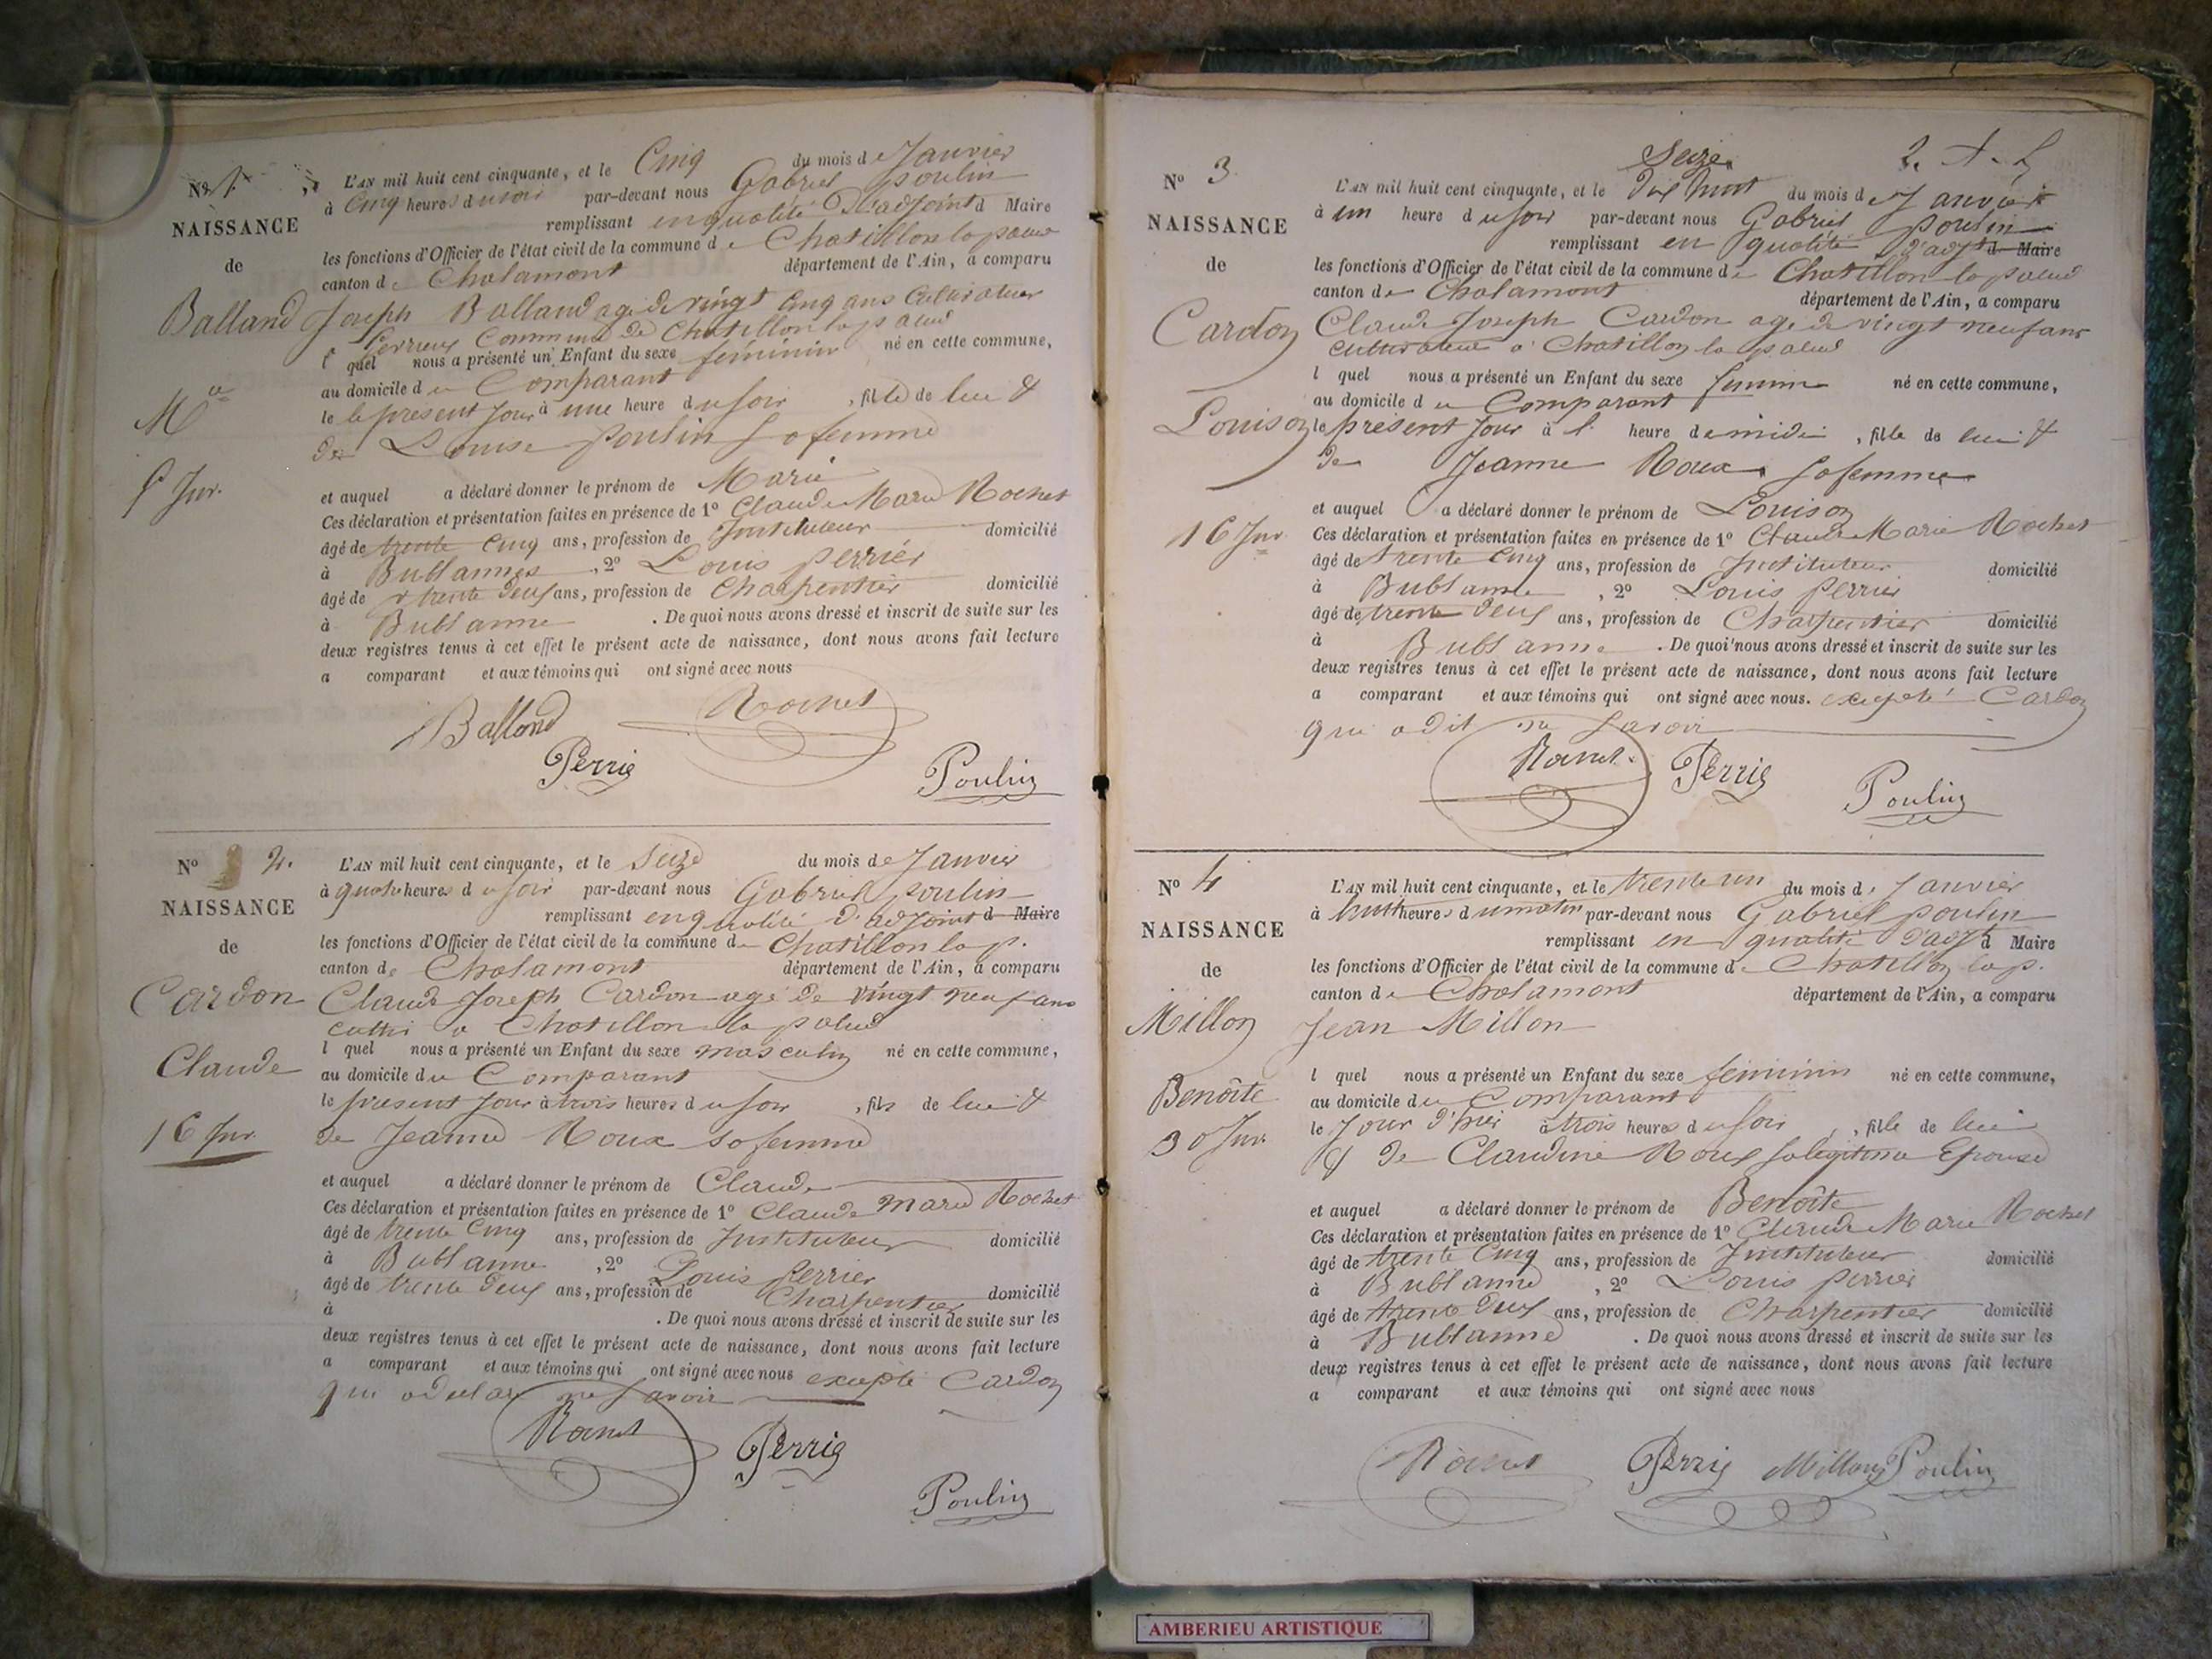 Nº 1.
NAISSANCE
de
Balland
Mie
5 Jer.
L'AN mil huit cent cinquante, et le Cinq du mois de Janvier
à Cinq heures du soir par-devant nous Gabriel poulin
remplissant en qualité D'adjoint d Maire
les fonctions d'Officier de l'état civil de la commune de Chatillon la palud
canton de Chalamont département de l'Ain, a comparu
Joseph Balland agé de vingt Cinq ans Cultivateur
Commune de Chatillon la palud
l quel nous a présenté un Enfant du sexe féminin né en cette commune,
au domicile du Comparant
le le présent Jour à une heure du soir , fille de lui &
de Louise poulin Sa femme
et auquel a déclaré donner le prénom de Marie
Ces déclaration et présentation faites en présence de 1º Claude Marie Rochet
âgé de trente Cinq ans, profession de Instituteur domicilié
à Bublannes , 2º Louis perrier
âgé de trente deux ans, profession de Charpentier domicilié
à Bublanne . De quoi nous avons dressé et inscrit de suite sur les
deux registres tenus à cet effet le présent acte de naissance, dont nous avons fait lecture
a comparant et aux témoins qui ont signé avec nous
Balland Rochet
Perrie
Poulin
Nº 2.
NAISSANCE
de
Cardon
Claude
16 Jer.
L'AN mil huit cent cinquante, et le Seize du mois de Janvier
à quatre heures du soir par-devant nous Gabriel poulin
remplissant en qualité d'adjoint d Maire
les fonctions d'Officier de l'état civil de la commune de Chatillon la p.
canton de Chalamont département de l'Ain, a comparu
Claude Joseph Cardon agé de vingt neuf ans
cultiv a Chatillon la palud
l quel nous a présenté un Enfant du sexe masculin né en cette commune,
au domicile du Comparant
le présent Jour à trois heures du soir , fils de lui &
de Jeanne Roux sa femme
et auquel a déclaré donner le prénom de Claude
Ces déclaration et présentation faites en présence de 1º Claude Marie Rochet
âgé de trente Cinq ans, profession de Instituteur domicilié
à Bublanne , 2º Louis perrier
âgé de trente deux ans, profession de Charpentier domicilié
à . De quoi nous avons dressé et inscrit de suite sur les
deux registres tenus à cet effet le présent acte de naissance, dont nous avons fait lecture
a comparant et aux témoins qui ont signé avec nous excepté Cardon
qui a déclaré ne Savoir
Rochet Perrie
Poulin
2. A. L
Nº 3.
NAISSANCE
de
Cardon
Louison
16 Jer
Seize
L'AN mil huit cent cinquante, et le Dix huit du mois de Janvier
à un heure du soir par-devant nous Gabriel poulin
remplissant en qualité D'adjt d Maire
les fonctions d'Officier de l'état civil de la commune de Chatillon la palud
canton de Chalamont département de l'Ain, a comparu
Claude Joseph Cardon agé de vingt neuf ans
cultivateur a Chatillon la palud
l quel nous a présenté un Enfant du sexe feminin né en cette commune,
au domicile du Comparant
le présent Jour à l' heure de midi , fille de lui &
de Jeanne Roux Sa femme
et auquel a déclaré donner le prénom de Louison
Ces déclaration et présentation faites en présence de 1º Claude Marie Rochet
âgé de trente Cinq ans, profession de Instituteur domicilié
à Bublanne , 2º Louis perrier
âgé de trente deux ans, profession de Charpentier domicilié
à Bublanne . De quoi nous avons dressé et inscrit de suite sur les
deux registres tenus à cet effet le présent acte de naissance, dont nous avons fait lecture
a comparant et aux témoins qui ont signé avec nous. excepté Cardon
qui a dit ne Savoir
Rochet Perrie
Poulin
Nº 4
NAISSANCE
de
Millon
Benoîte
30 Jer.
L'AN mil huit cent cinquante, et le trente un du mois de Janvier
à huit heures du matin par-devant nous Gabriel poulin
remplissant en qualité D'adjt d Maire
les fonctions d'Officier de l'état civil de la commune de Chatillon la p.
canton de Chalamont département de l'Ain, a comparu
Jean Millon
l quel nous a présenté un Enfant du sexe féminin né en cette commune,
au domicile du Comparant
le Jour d'hier à trois heures du soir , fille de lui
& de Claudine Roux Sa légitime Epouse
et auquel a déclaré donner le prénom de Benoîte
Ces déclaration et présentation faites en présence de 1º Claude Marie Rochet
âgé de trente Cinq ans, profession de Instituteur domicilié
à Bublanne , 2º Louis perrier
âgé de trente deux ans, profession de Charpentier domicilié
à Bublanne . De quoi nous avons dressé et inscrit de suite sur les
deux registres tenus à cet effet le présent acte de naissance, dont nous avons fait lecture
a comparant et aux témoins qui ont signé avec nous
Rochet Perrie Millon Poulin
AMBERIEU ARTISTIQUE